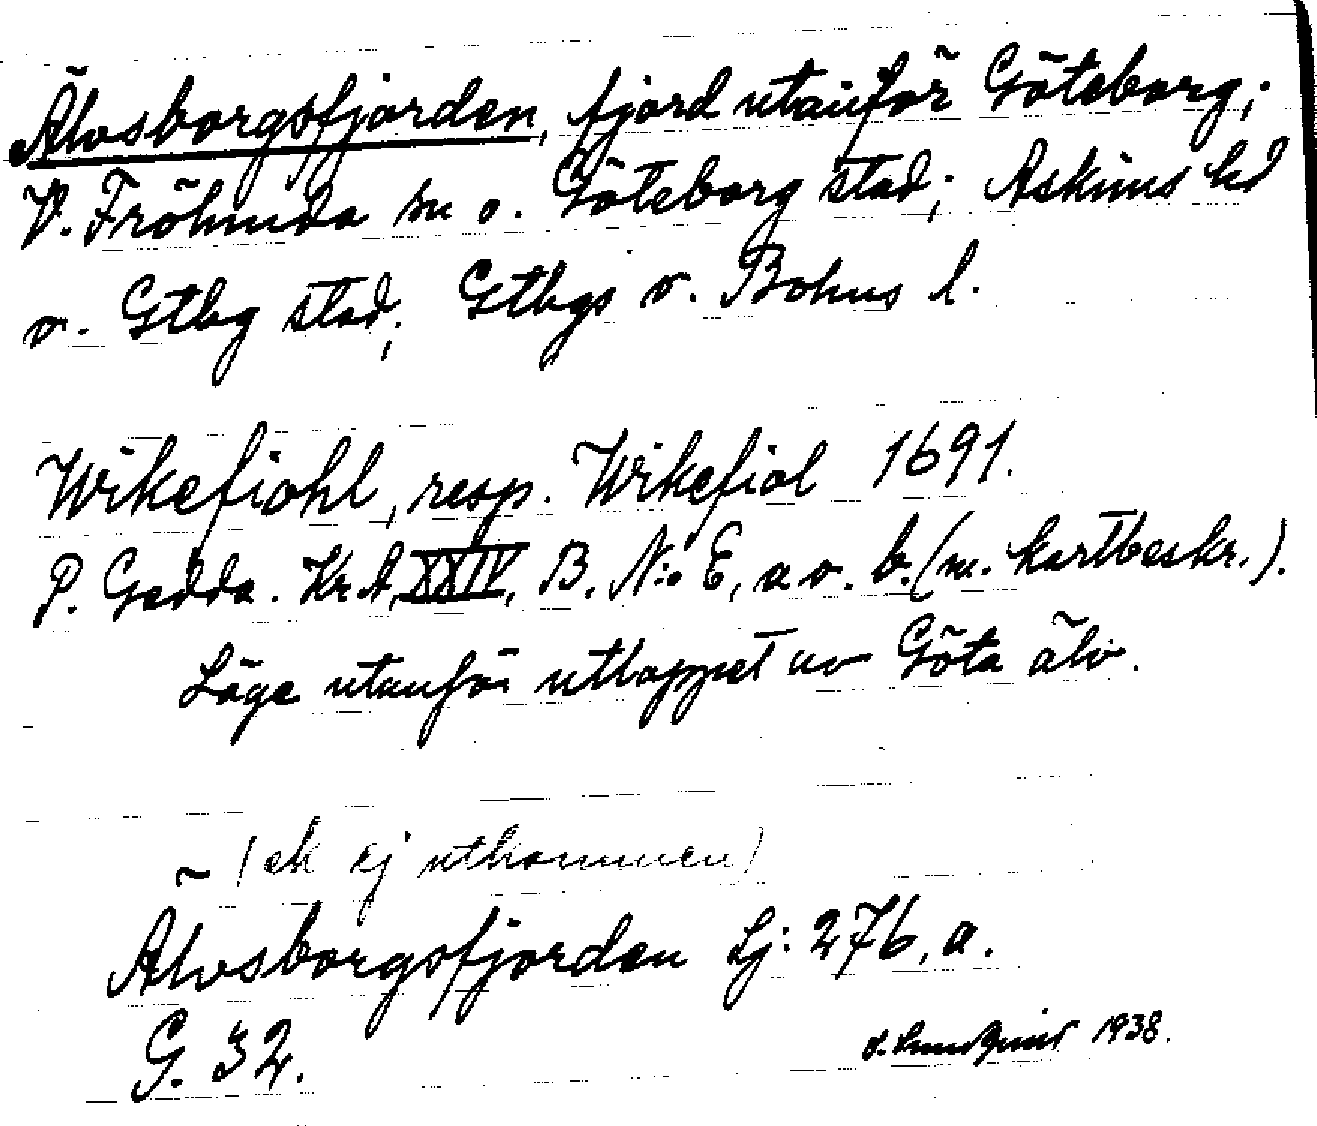 Älvsborgsfjorden, fjord utanför Göteborg;
V. Frölunda sn o. Göteborg stad; Askims hd
o. Gtbg stad; Gtbgs o. Bohus l.
Wikefiohl, resp. Wikefiol 1691.
P. Gedda. Kr. A, XXIV, B. N:o E, a o. b. (m. kartbeskr.).
Läge utanför utloppet av Göta älv.
(ek ej utkommen)
Älvsborgsfjorden Lj: 276, a.
G. 32.
1938.